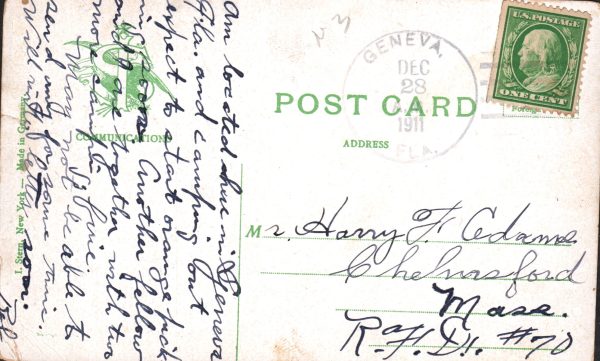 Am located here in Geneva
Fla. and camping out
expect to start orange pick
ing soon. Another fellow
and I are together with two
more camping
It's fine.
May not be able to
send any for some time.
Will write letter soon.
COMMUNICATIONS
I. Stern, New York — Made in Germany
GENEVA,
DEC
28
1911
FLA.
U.S. POSTAGE
ONE CENT
POST CARD
ADDRESS
Mr. Harry F. Adams
Chelmsford
Mass.
R.F.D. #70